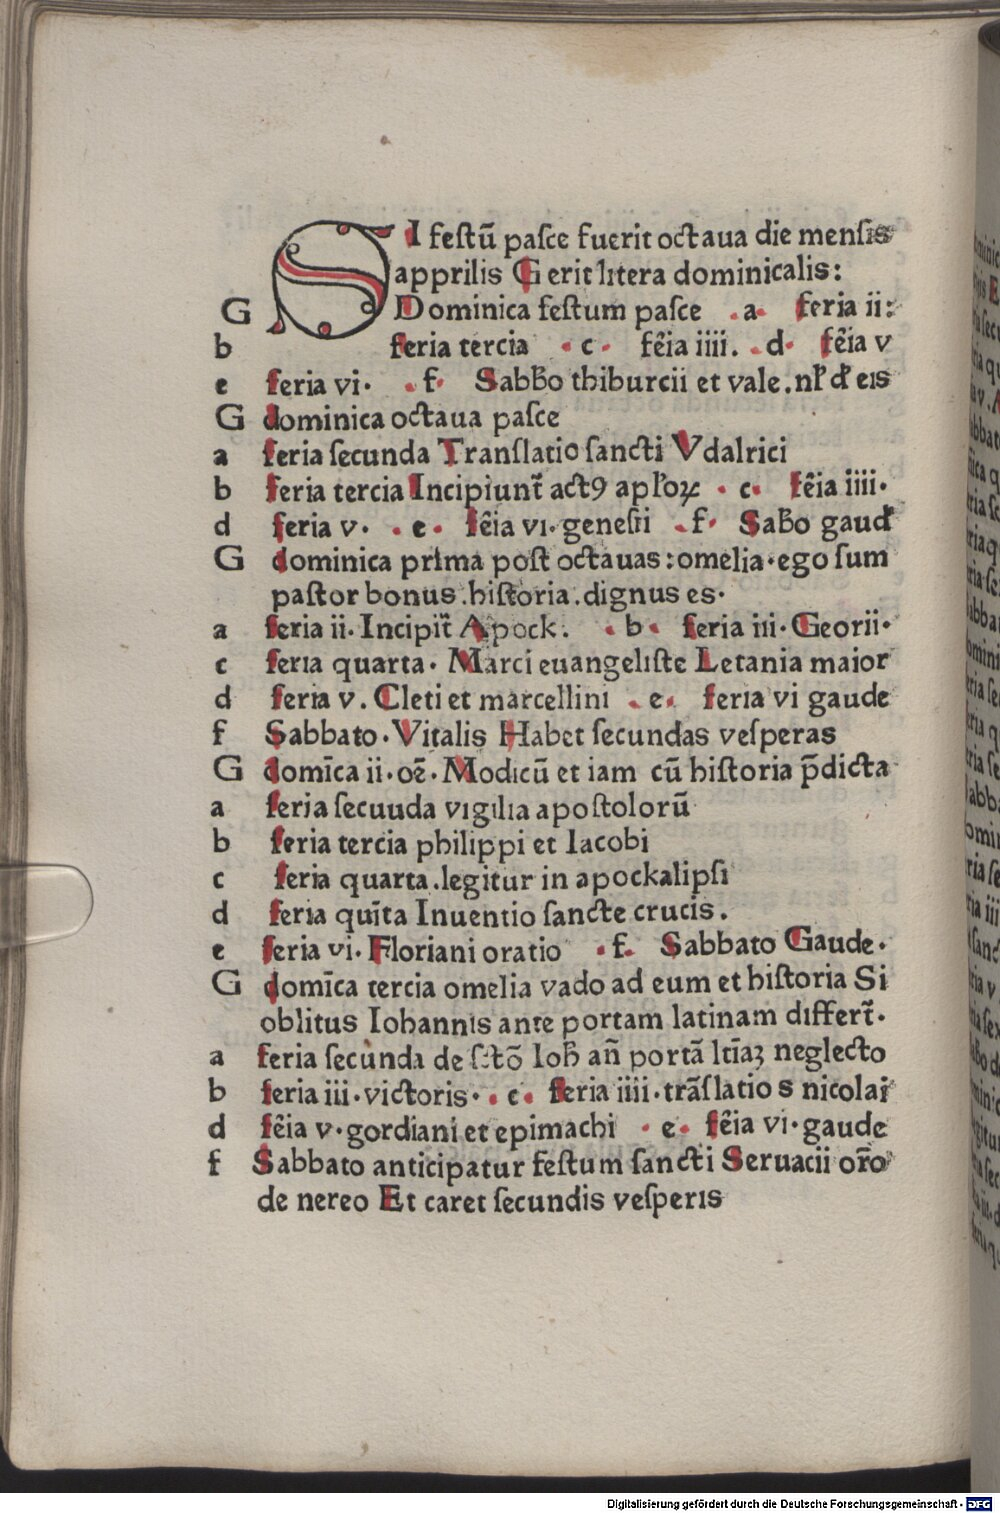 SI feſtū paſce fuerit octaua die menſis
apprilis G erit litera dominicalis:
G Dominica feſtum paſce .a. feria ii:
b feria tercia · c · fe͂ia iiii. .d· fe͂ia v
e feria vi· .f· Sabb̄o thiburcii et vale.nł d' eis
G dominica octaua paſce
a feria ſecunda Tranſlatio ſancti Vdalrici
b feria tercia Incipiunt̄ actꝰ apl'oꝝ · c· fe͂ia iiii·
d feria v· . e· fe͂ia vi·geneſii .f· Sab̄o gaud'
G dominica prima poſt octauas:omelia·ego ſum
paſtor bonus.hiſtoria.dignus es·
a feria ii. Incipit̄ Apock. . b· feria iii·Georii·
c feria quarta· Marci euangeliſte Letania maior
d feria v. Cleti et marcellini . e· feria vi gaude
f Sabbato·Vitalis Habet ſecundas veſperas
G domīca ii·oē·Modicū et iam cū hiſtoria p̄dicta
a feria ſecuuda vigilia apoſtolorū
b feria tercia philippi et Iacobi
c feria quarta.legitur in apockalipſi
d feria quīta Inuentio ſancte crucis.
e feria vi·Floriani oratio ·f. Sabbato Gaude·
G domīca tercia omelia vado ad eum et hiſtoria Si
oblitus Iohannis ante portam latinam differt̄·
a feria ſecunda de ſctō Ioh̄ an̄ portā ltīaꝫ neglecto
b feria iii·victoris· . c· feria iiii·trāſlatio s nicolai
d fe͂ia v·gordiani et epimachi · e· fe͂ia vi·gaude
f Sabbato anticipatur feſtum ſancti Seruacii or̄o
de nereo Et caret ſecundis veſperis
Digitalisierung gefördert durch die Deutsche Forschungsgemeinschaft - DFG